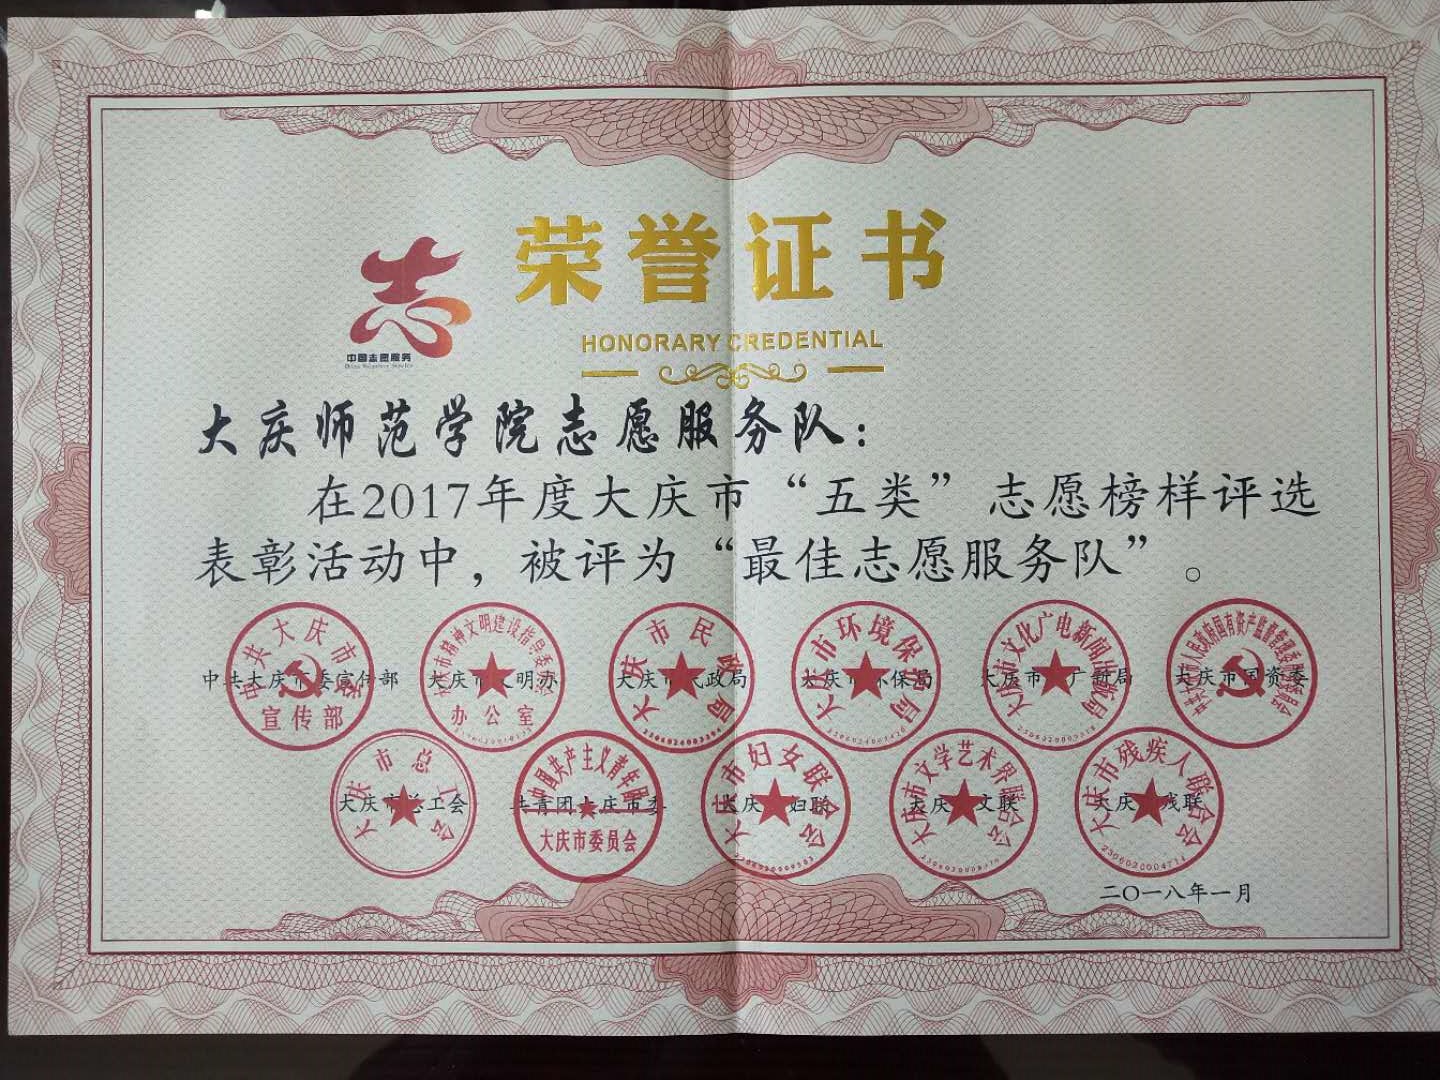 荣誉证书
HONORARY CREDENTIAL
志
中国志愿服务
China Voluntary Service
大庆师范学院志愿服务队：
在2017年度大庆市“五类”志愿榜样评选
表彰活动中，被评为“最佳志愿服务队”。
中共大庆市委宣传部 大庆市文明办 大庆市民政局 大庆市环保局 大庆市文广新局 大庆市国资委
中共大庆市委 宣传部
办公室
大庆市民政局
大庆市环境保护局
大庆市文化广电新闻出版局
大庆市总工会 共青团大庆市委 大庆市妇联 大庆市文联 大庆市残联
大庆市总工会
中国共产主义青年团 大庆市委员会
大庆市妇女联合会
大庆市文学艺术界联合会
大庆市残疾人联合会
2306020004714
二〇一八年一月